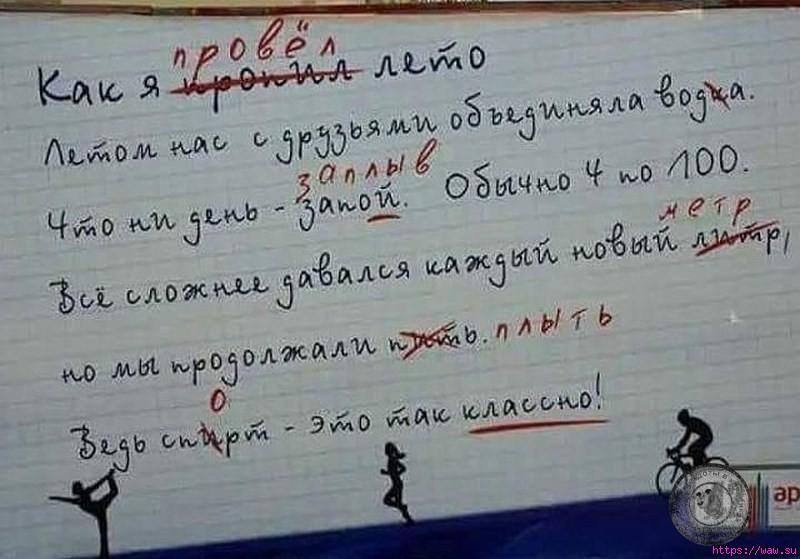 провёл
Как я пропил лето
Летом нас с друзьями объединяла водка.
заплыв
Что ни день - запой. Обычно 4 по 100.
метр
Всё сложнее давался каждый новый литр,
но мы продолжали пить. плыть
о
Ведь спирт - это так классно!
ар
https://waw.su